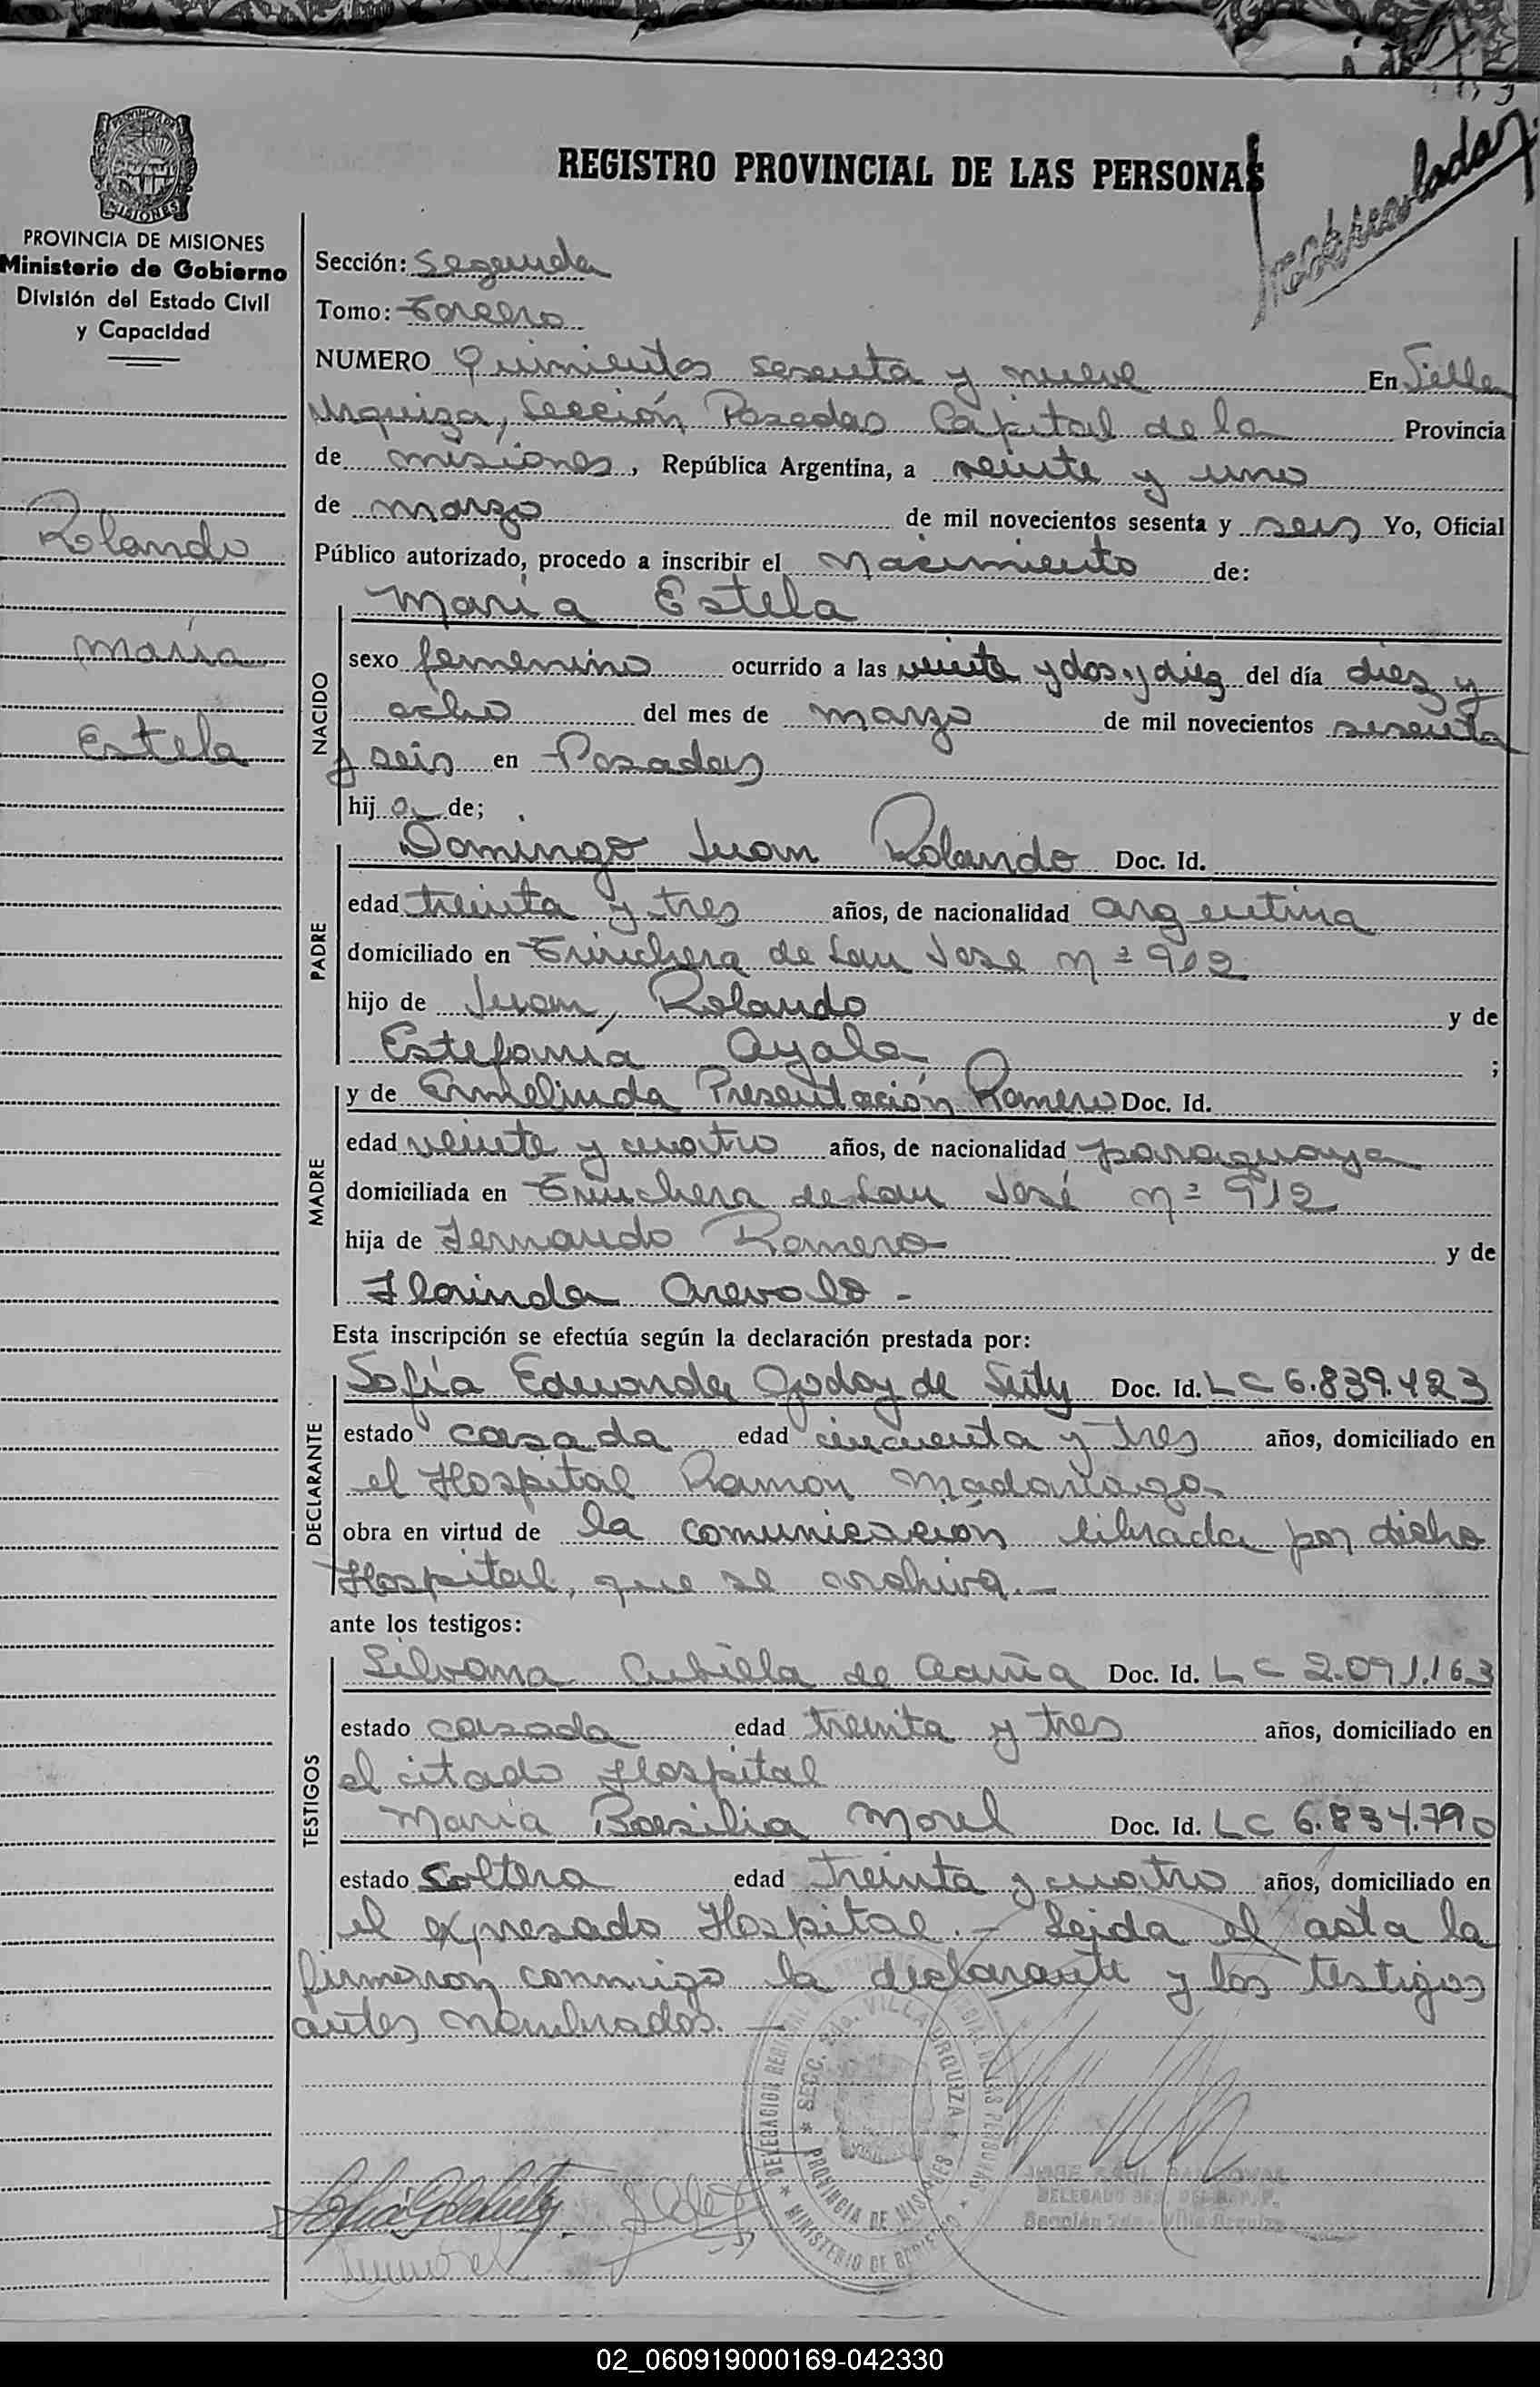 REGISTRO PROVINCIAL DE LAS PERSONAS
PROVINCIA DE MISIONES
Ministerio de Gobierno
División del Estado Civil
y Capacidad
Rolando
María
Estela
Sección: Segunda
Tomo: Tercero
NUMERO Quinientos sesenta y nueve En Villa
Urquiza, Sección Posadas Capital de la Provincia
de misiones, República Argentina, a veinte y uno
de marzo de mil novecientos sesenta y seis Yo, Oficial
Público autorizado, procedo a inscribir el Nacimiento de:
NACIDO
María Estela
sexo femenino ocurrido a las veinte y dos y diez del día diez y
ocho del mes de marzo de mil novecientos sesenta
y seis en Posadas
hija de;
PADRE
Domingo Juan Rolando Doc. Id.
edad treinta y tres años, de nacionalidad argentina
domiciliado en Trinchera de San Jose Nº 912
hijo de Juan, Rolando y de
Estefanía Ayala ;
MADRE
y de Ermelinda Presentación Romero Doc. Id.
edad veinte y cuatro años, de nacionalidad paraguaya
domiciliada en Trinchera de San José Nº 912
hija de Fernando Romero y de
Florinda Arevalo -
Esta inscripción se efectúa según la declaración prestada por:
DECLARANTE
Sofía Eduarda Godoy de Doc. Id. LC 6.839.423
estado casada edad cincuenta y tres años, domiciliado en
el Hospital Ramon Madariaga
obra en virtud de la comunicación librada por dicho
Hospital, que se archiva.-
ante los testigos:
TESTIGOS
Silvana Cubilla de Acuña Doc. Id. LC 2.091.163
estado casada edad treinta y tres años, domiciliado en
el citado Hospital
María Basilia Morel Doc. Id. LC 6.834.790
estado soltera edad treinta y cuatro años, domiciliado en
el expresado Hospital.- Leida el acta la
firmaron conmigo la declarante y los testigos
antes nombrados.-
SECC. 2da. VILLA URQUIZA
PROVINCIA DE MISIONES
MINISTERIO DE GOBIERNO
02_060919000169-042330